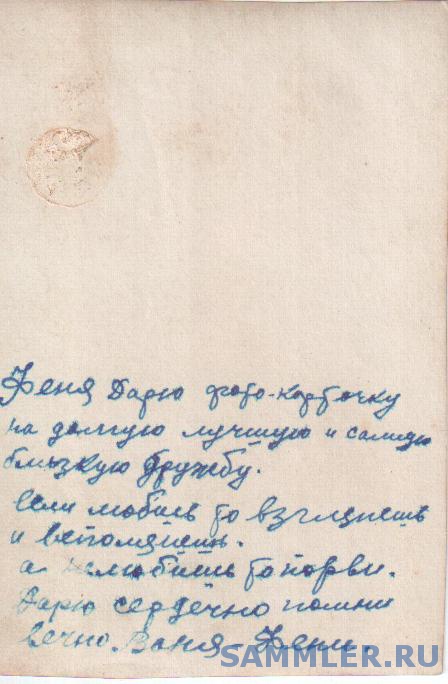 Феня Дарю фото-карточку
на долгую лучшую и самую
близкую дружбу.
если любиш то взгленешь
и вспомнешь.
а нелюбишь то порви.
Дарю сердечно помни
вечно. Ваня - Фени.
SAMMLER.RU